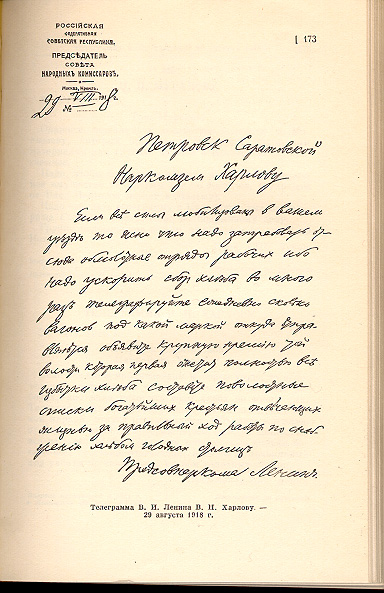 РОССІЙСКАЯ
ФЕДЕРАТИВНАЯ
СОВѢТСКАЯ РЕСПУБЛИКА.
ПРЕДСѢДАТЕЛЬ
СОВѢТА
НАРОДНЫХЪ КОМИССАРОВЪ.
Москва, Кремль.
29/VIII 1918 г.
№
[ 173
Петровск Саратовской
Наркомзем Харлову
Если все силы мобилизованы в вашем
уезде то ясно что надо
сюда отряды рабочих ибо
надо ускорить сбор хлеба во много
раз телеграфируйте ежедневно сколько
вагонов под какой меркой откуда
объявите крупную премию той
волости которая первая полностью все
хлеба составьте поволостные
списки богатейших крестьян отвечающих
жизнью за правильный ход работы по снаб
жению хлебом голодных столиц
Предсовнаркома Ленин.
Телеграмма В. И. Ленина В. Н. Харлову. —
29 августа 1918 г.